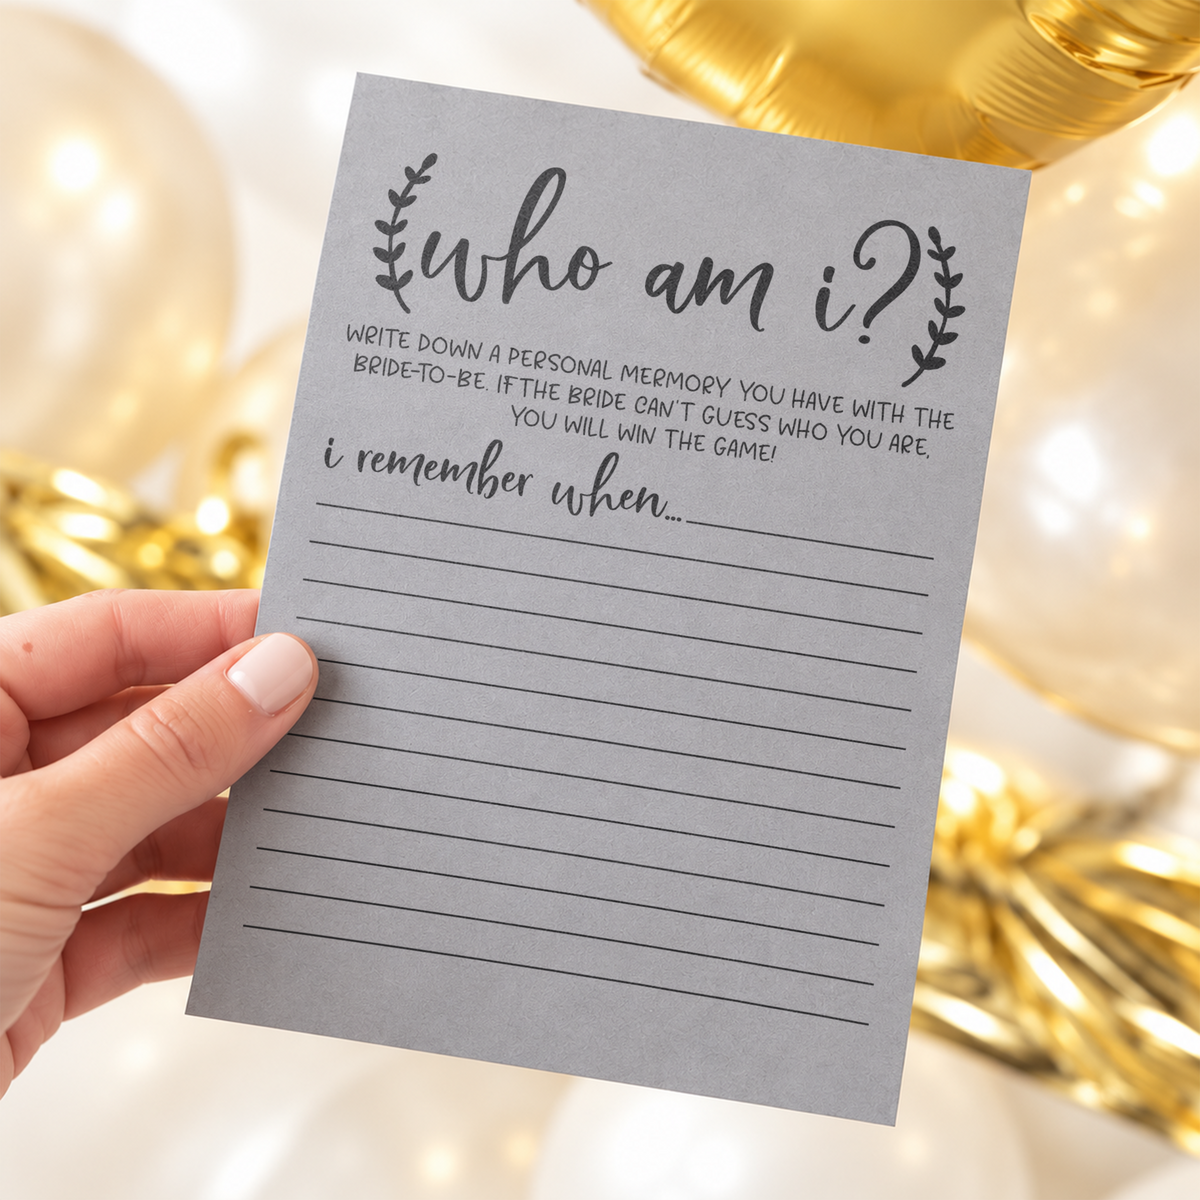 who am i?
WRITE DOWN A PERSONAL MERMORY YOU HAVE WITH THE
BRIDE-TO-BE. IF THE BRIDE CAN'T GUESS WHO YOU ARE,
YOU WILL WIN THE GAME!
i remember when...